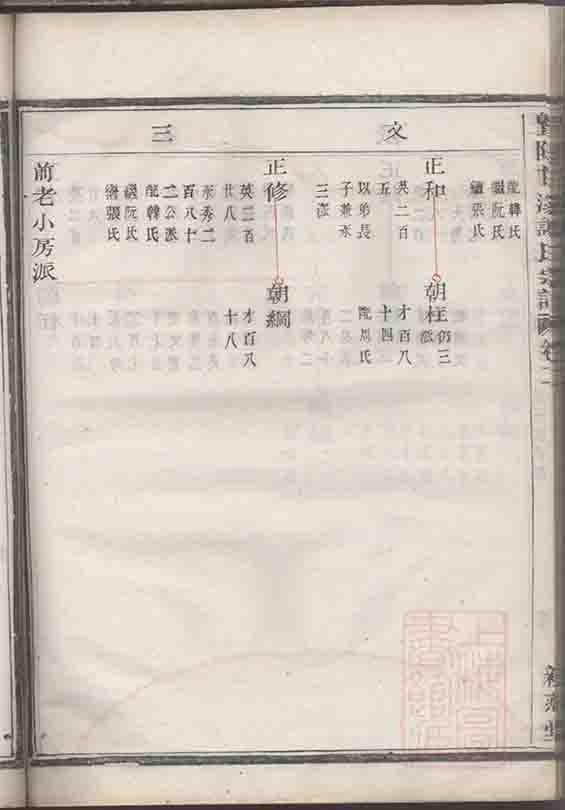 文 三
配韓氏
繼阮氏
續張氏
正和
英二百
五
以弟長
子兼承
三派
朝柱
仍三
派
才百八
十四
配周氏
正修
英二百
廿八
承秀二
百八十
二公派
配韓氏
繼阮氏
續張氏
朝綱
才百八
十八
前老小房派
氏宗譜 卷三